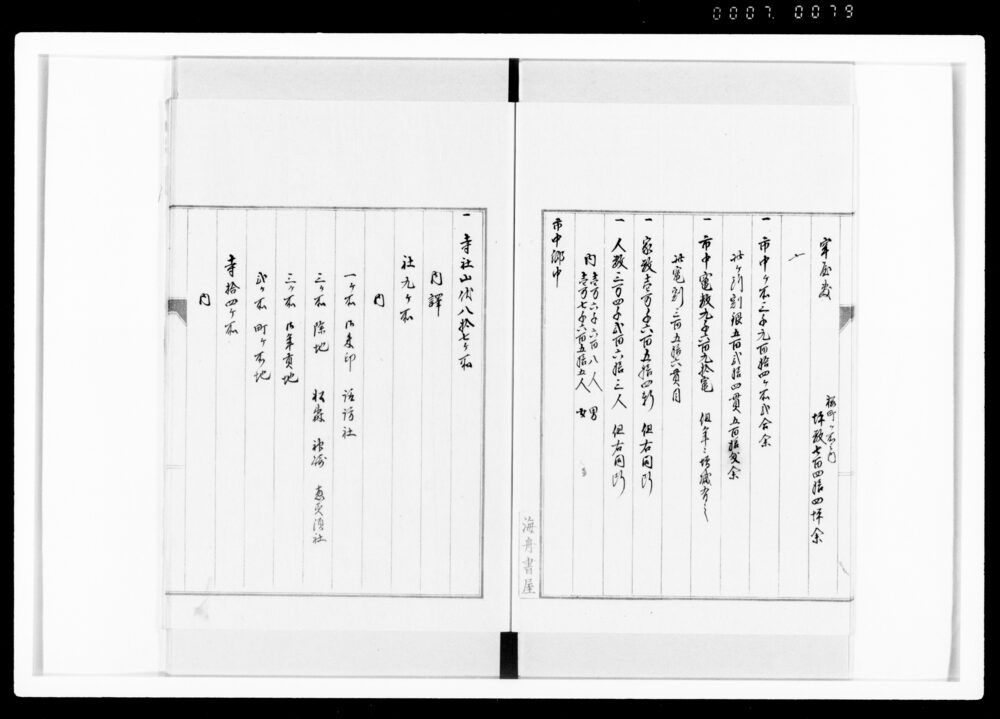 0007 0079
牢屋敷
桜町ヶ所之内
坪数七百四拾四坪余
一
一 市中ヶ所三千九百拾四ヶ所弐合余
此ヶ所割銀五百弐拾四貫五百拾匁余
一 市中竈数九千六百九拾竈 但年々増減有之
此竈割三百五拾六貫目
一 家数壱万千六百五拾四軒 但右同断
一 人数三万四千弐百六拾三人 但右同断
内
壱万六千六百八人 男
壱万七千六百五拾五人 女
市中郷中
海舟書屋
一 寺社山伏八拾七ヶ所
内譯
社九ヶ所
内
一ヶ所 御朱印 諏訪社
三ヶ所 除地 松森 神崎 恵美須社
三ヶ所 御年貢地
弐ヶ所 町ヶ所地
寺拾四ヶ所
内